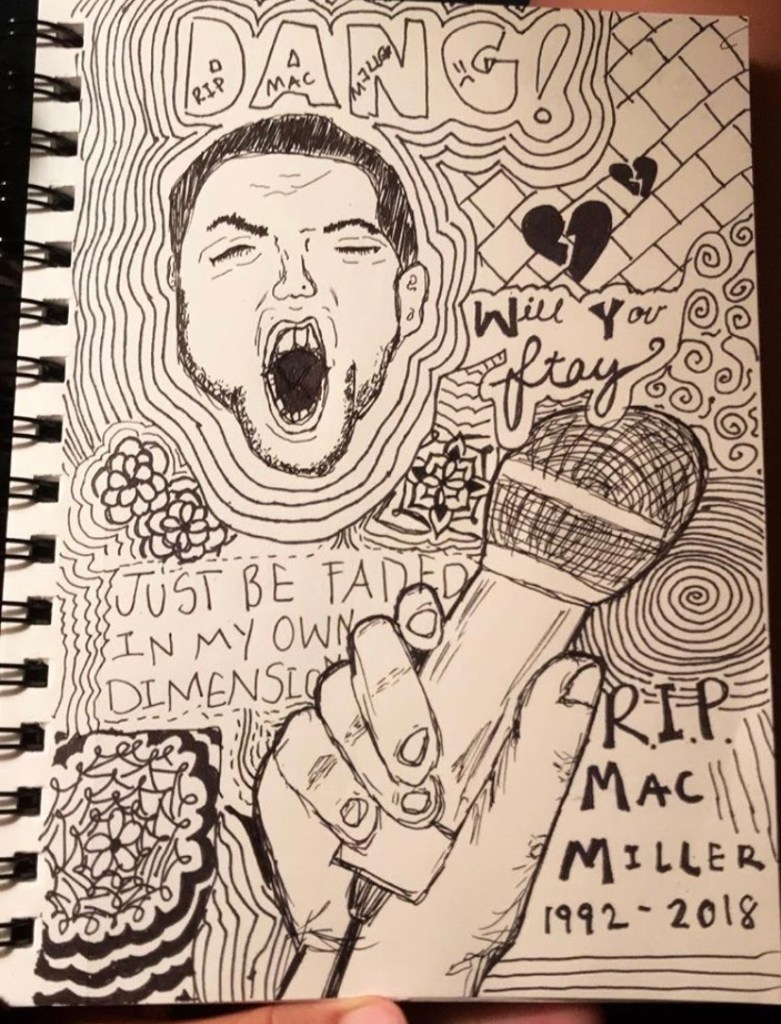 DANG!
RIP MAC MILLER
Will You
Stay
JUST BE FADED
IN MY OWN
DIMENSION
R.I.P.
MAC
MILLER
1992-2018